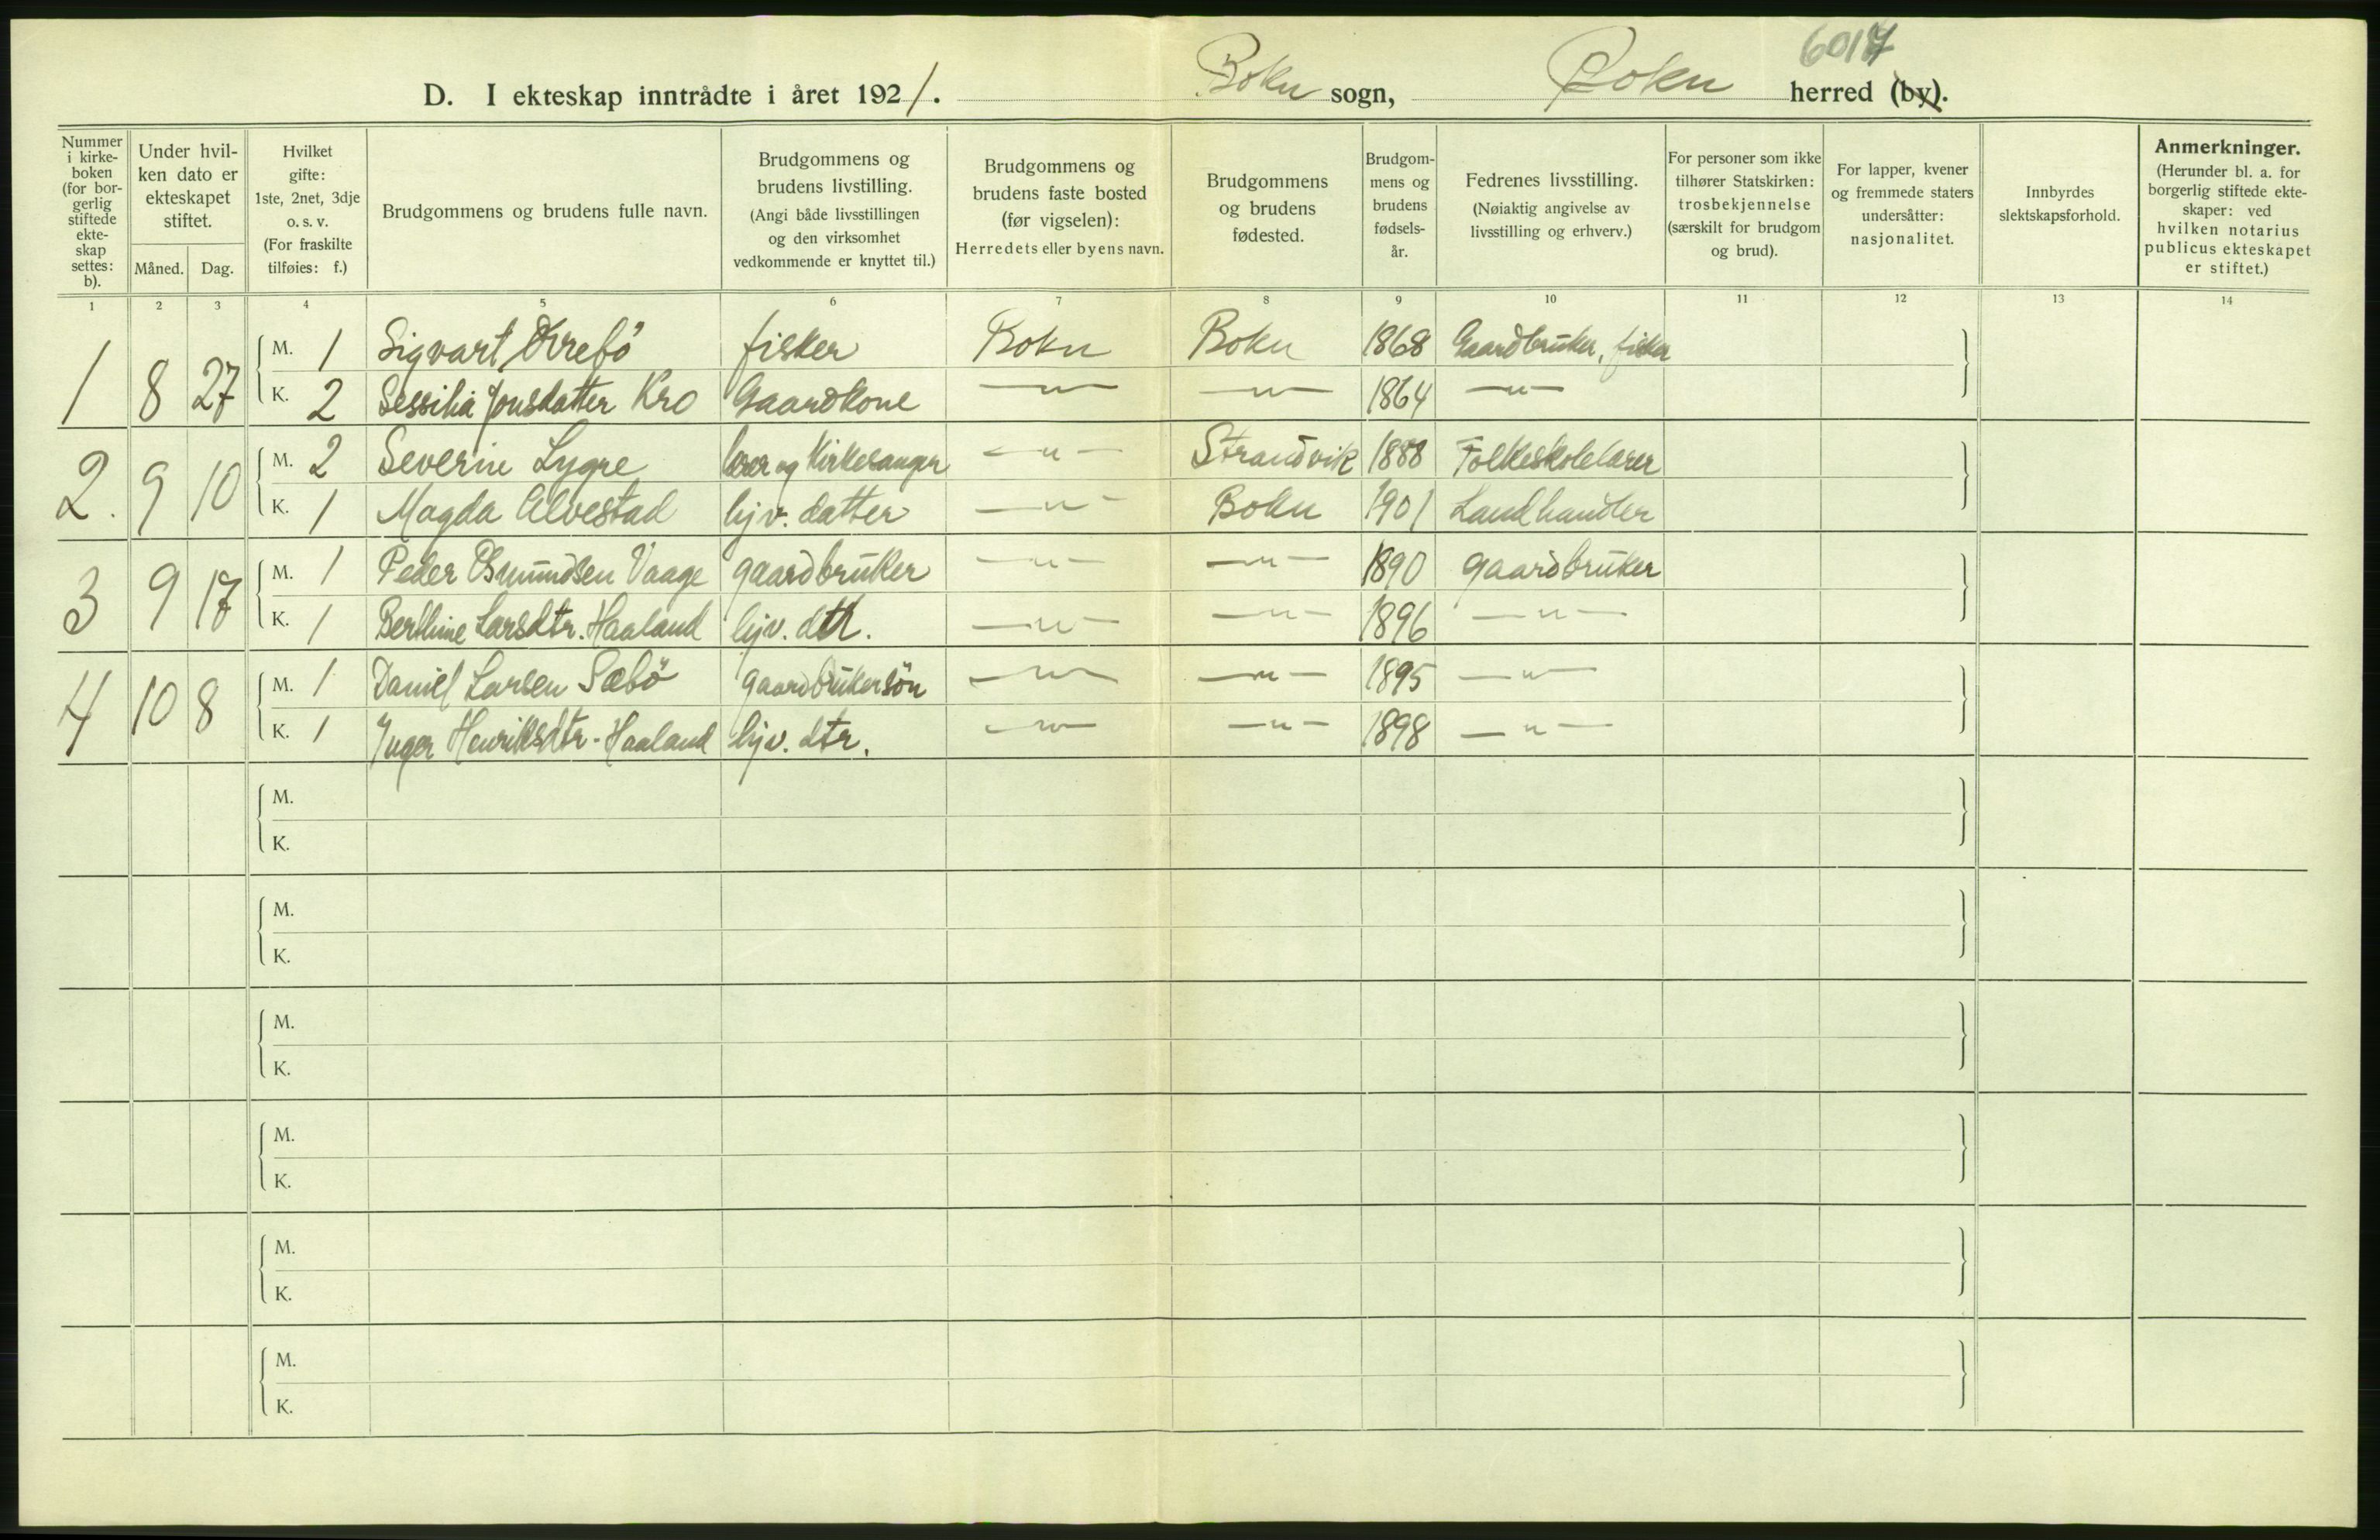 6017
D. I ekteskap inntrådte i året 1921. Bokn sogn, Bokn herred (by).
Nummer i kirke-boken (for bor-gerlig stiftede ekte-skap settes: b).
Under hvil-ken dato er ekteskapet stiftet.
Måned. Dag.
Hvilket gifte: 1ste, 2net, 3dje o. s. v. (For fraskilte tilføies: f.)
Brudgommens og brudens fulle navn.
Brudgommens og brudens livstilling. (Angi både livsstillingen og den virksomhet vedkommende er knyttet til.)
Brudgommens og brudens faste bosted (før vigselen): Herredets eller byens navn.
Brudgommens og brudens fødested.
Brudgom-mens og brudens fødsels-år.
Fedrenes livsstilling. (Nøiaktig angivelse av livsstilling og erhverv.)
For personer som ikke tilhører Statskirken: trosbekjennelse (særskilt for brudgom og brud).
For lapper, kvener og fremmede staters undersåtter: nasjonalitet.
Innbyrdes slektskapsforhold.
Anmerkninger. (Herunder bl. a. for borgerlig stiftede ekte-skaper: ved hvilken notarius publicus ekteskapet er stiftet.)
1 2 3 4 5 6 7 8 9 10 11 12 13 14
1 8 27 M. 1 Sigvart Ørrebö fisker Bokn Bokn 1868 Gaardbruker, fisker
K. 2 Sessilia Jonsdatter Kro Gaardkone —"— —"— 1864 —"—
2. 9 10 M. 2 Severin Lygre lærer og Kirkesanger —"— Strandvik 1888 Folkeskolelærer
K. 1 Magda Alvestad hjv. datter —"— Bokn 1901 Landhandler
3 9 17 M. 1 Peder Osmundsen Vaage gaardbruker —"— —"— 1890 gaardbruker
K. 1 Berthine Larsdtr. Haaland hjv. dtr. —"— —"— 1896 —"—
4 10 8 M. 1 Daniel Larsen Sæbö gaardbrukersön —"— —"— 1895 —"—
K. 1 Inger Henriksdtr. Haaland hjv. dtr. —"— —"— 1898 —"—
M.
K.
M.
K.
M.
K.
M.
K.
M.
K.
M.
K.